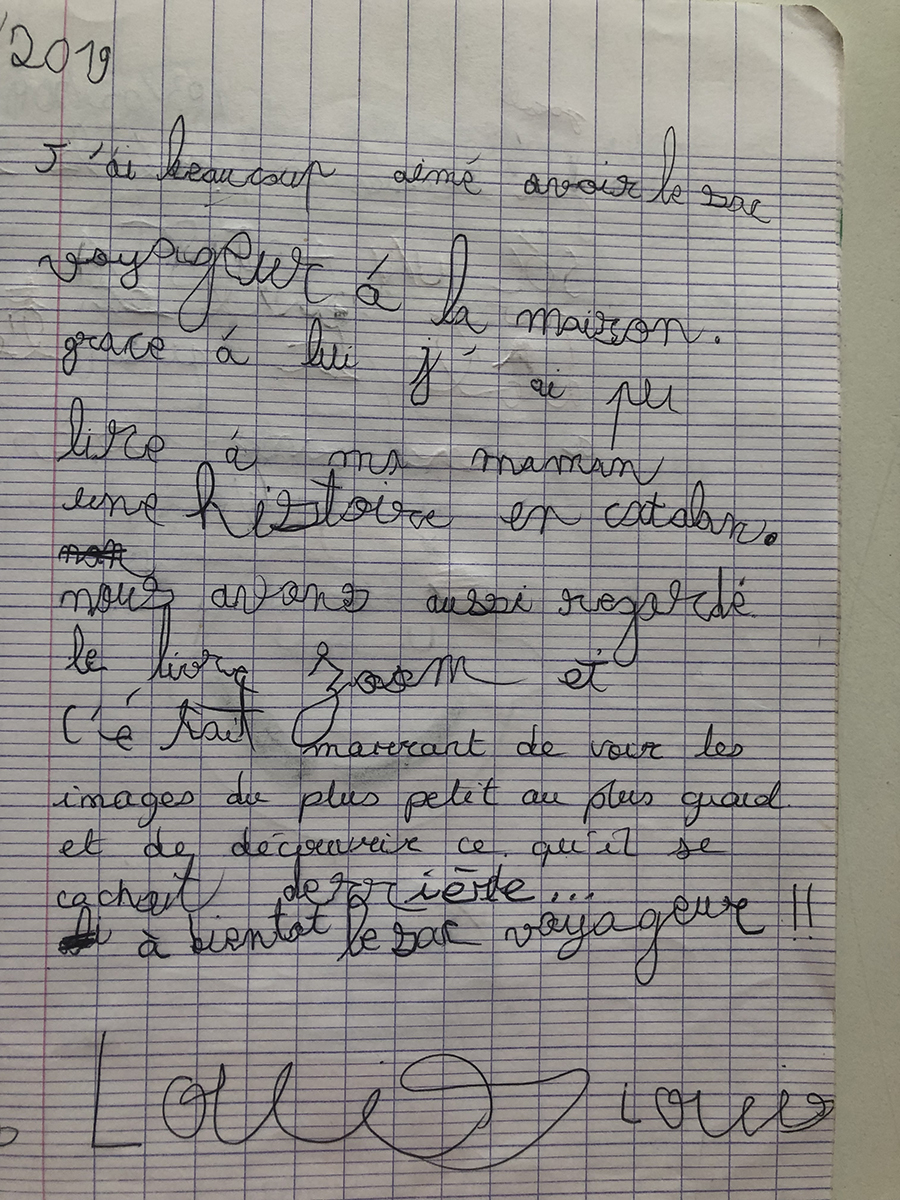 /2019
J'ai beaucoup aimé avoir le sac
voyageur à la maison.
grace à lui j'ai pu
lire à ma maman
une histoire en catalan.
nous avons aussi regardé
le livre zoom et
C'était marrant de voir les
images du plus petit au plus grand
et de découvrir ce qu'il se
cachait derrière...
à bientot le sac voyageur !!
Louis Louis